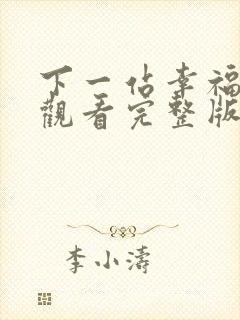 下一佔幸福
觀看完整版
李小濤